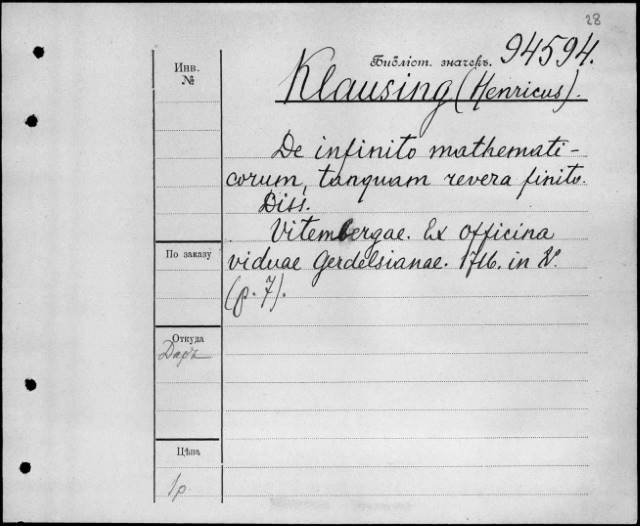 28
Библіот. значекъ. 94594.
Инв.
№
Klausing (Henricus).
De infinito mathemati-
corum, tanquam revera finito.
Diss.
Vitembergae. Ex officina
viduae Gerdesianae. 1716. in
(p. 7).
По заказу
Откуда
Даръ
Цѣна
1 р.